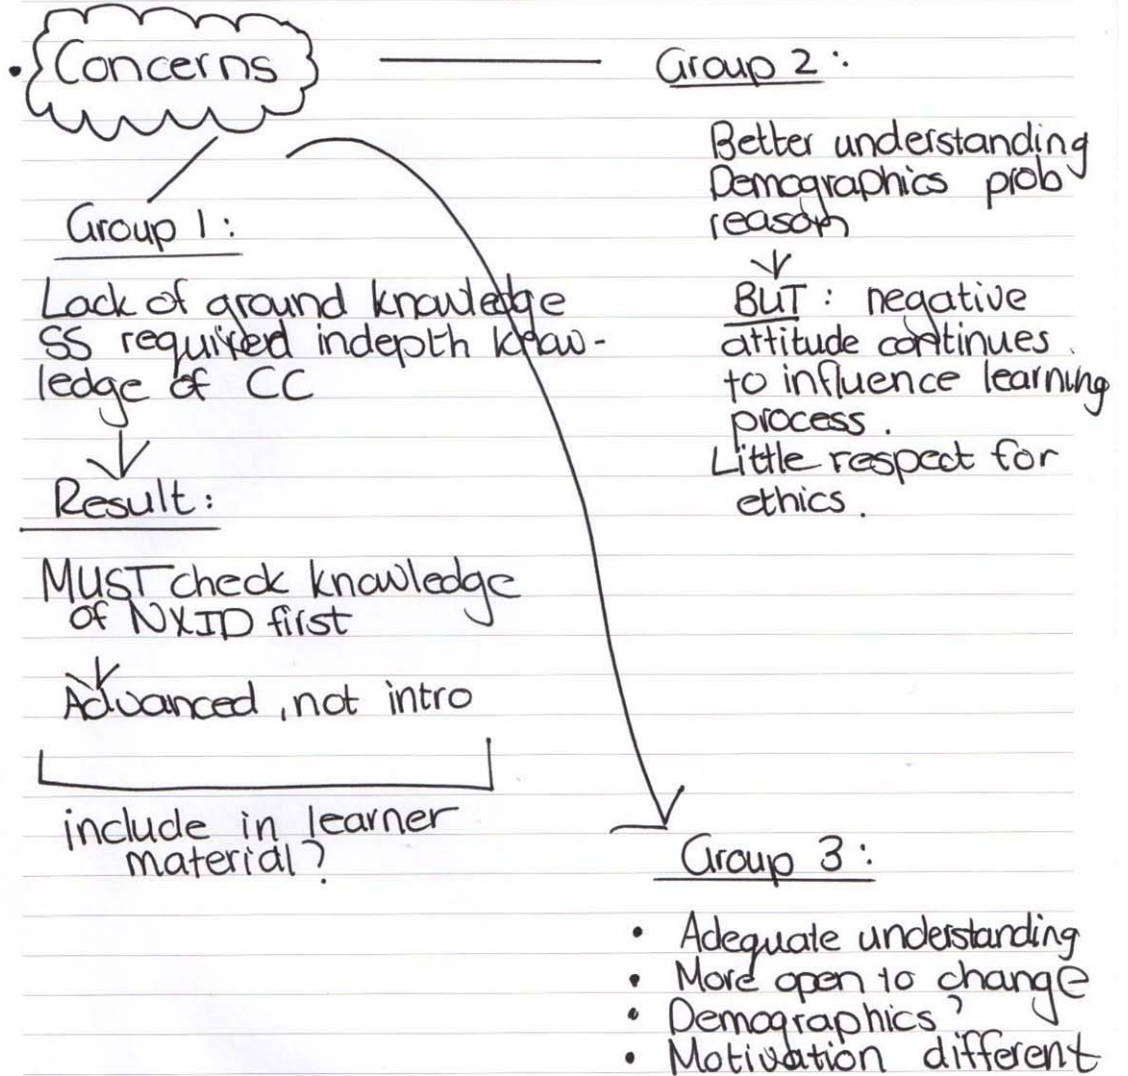 Concerns
Group 1:
Lack of ground knowledge
SS required indepth know-
ledge of CC
Result:
MUST check knowledge
of NXID first
Advanced, not intro
include in learner
material?
Group 2:
Better understanding
Demographics prob
reason
BUT: negative
attitude continues
to influence learning
process.
Little respect for
ethics.
Group 3:
• Adequate understanding
• More open to change
• Demographics?
• Motivation different